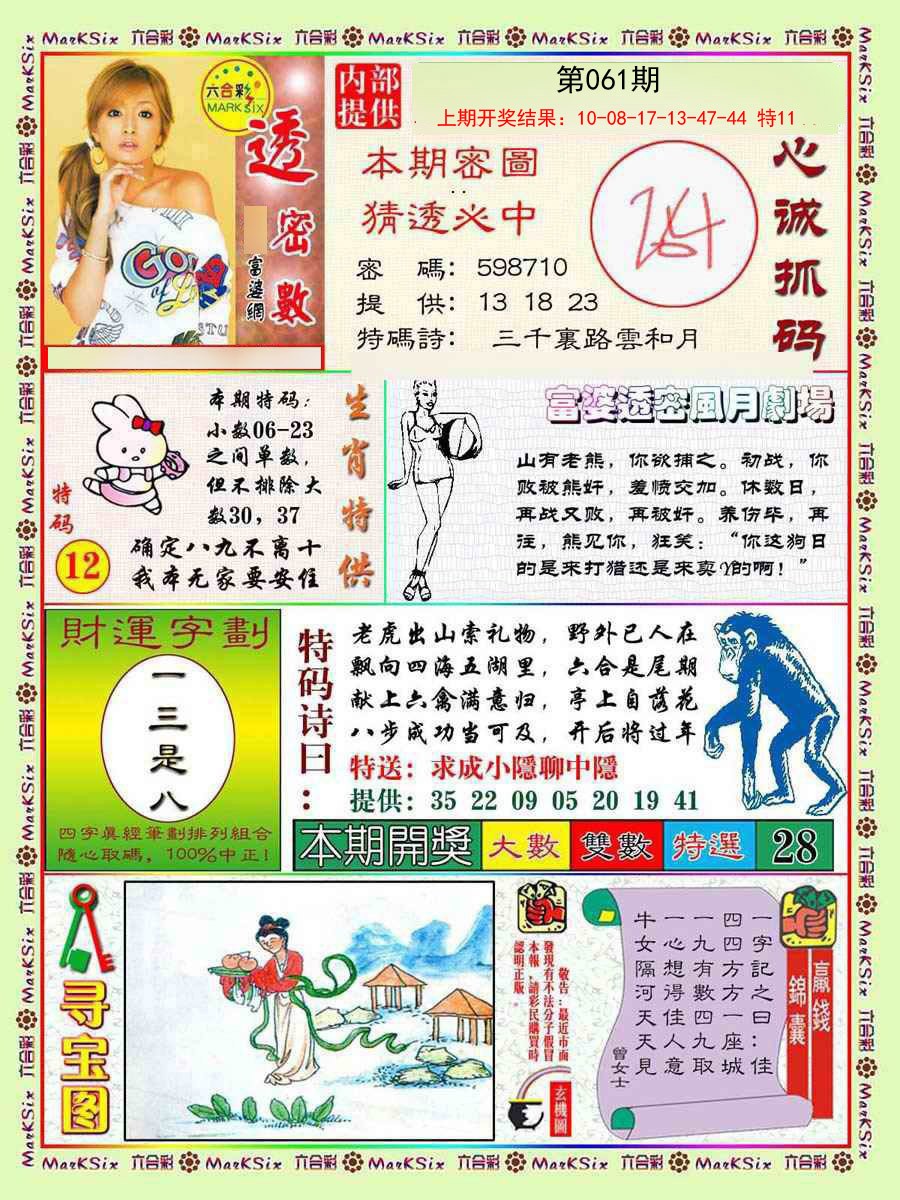 六合彩
MARK SIX
透密數
富婆網
内部
提供
第061期
上期开奖结果：10-08-17-13-47-44 特11
本期密圖
猜透必中
密 碼：598710
提 供：13 18 23
特碼詩： 三千裏路雲和月
心诚抓码
本期特码：
小数06-23
之间单数，
但不排除大
数30，37
特码
12
确定八九不离十
我本无家要安住
生肖特供
富婆透密風月劇場
山有老熊，你欲捕之。初战，你
败被熊奸，羞愤交加。休数日，
再战又败，再被奸。养伤毕，再
往，熊见你，狂笑：“你这狗日
的是来打猎还是来卖Y的啊！”
財運字劃
一三是八
四字眞經筆劃排列組合
隨心取碼，100%中正!
特码诗曰：
老虎出山索礼物，野外已人在
飘向四海五湖里，六合是尾期
献上六禽满意归，亭上自落花
八步成功当可及，开后将过年
特送：求成小隱聊中隱
提供：35 22 09 05 20 19 41
本期開獎 大數 雙數 特選 28
寻宝图
敬告：最近市面
發現有不法分子假冒
本報，請彩民購買時
認明正版。
玄機圖
一字記之曰：佳
四四方方一座城
一九有數四九取
一心想得佳人意
牛女隔河天天見
曾女士
贏錢
錦囊
MarKSix 六合彩 MarKSix 六合彩 MarKSix 六合彩 MarKSix 六合彩 MarKSix 六合彩